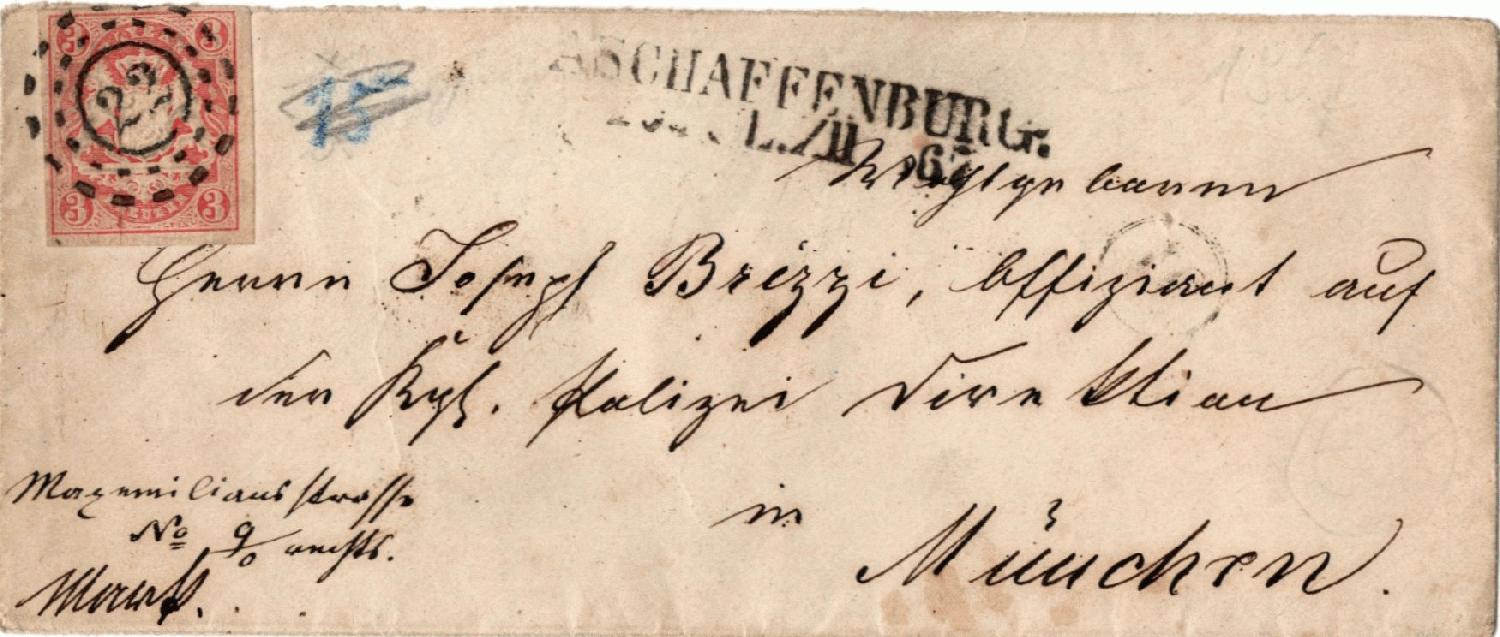 3 3
23
3 3
15
ASCHAFFENBURG.
JUL. III 67
Wohlgeboren
Herrn Joseph Brizzi, Offiziant auf
der Kgl. Polizei Direktion
in
München.
Maxemilians strasse
No 9/0 rechts.